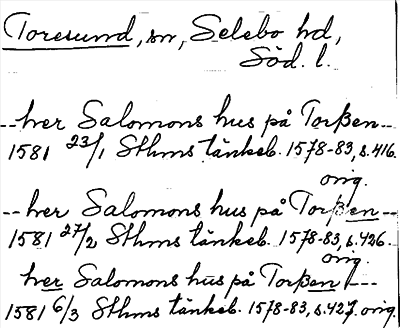 Toresund, sn, Selebo hd,
Söd. l.
--her Salomons hus på Torßen--
1581 23/1 Sthms tänkeb. 1578-83, s. 416.
orig.
--her Salomons hus på Torßen--
1581 27/2 Sthms tänkeb. 1578-83, s. 426.
orig.
her Salomons hus på Torßen ---
1581 6/3 Sthms tänkeb. 1578-83, s. 427. orig.